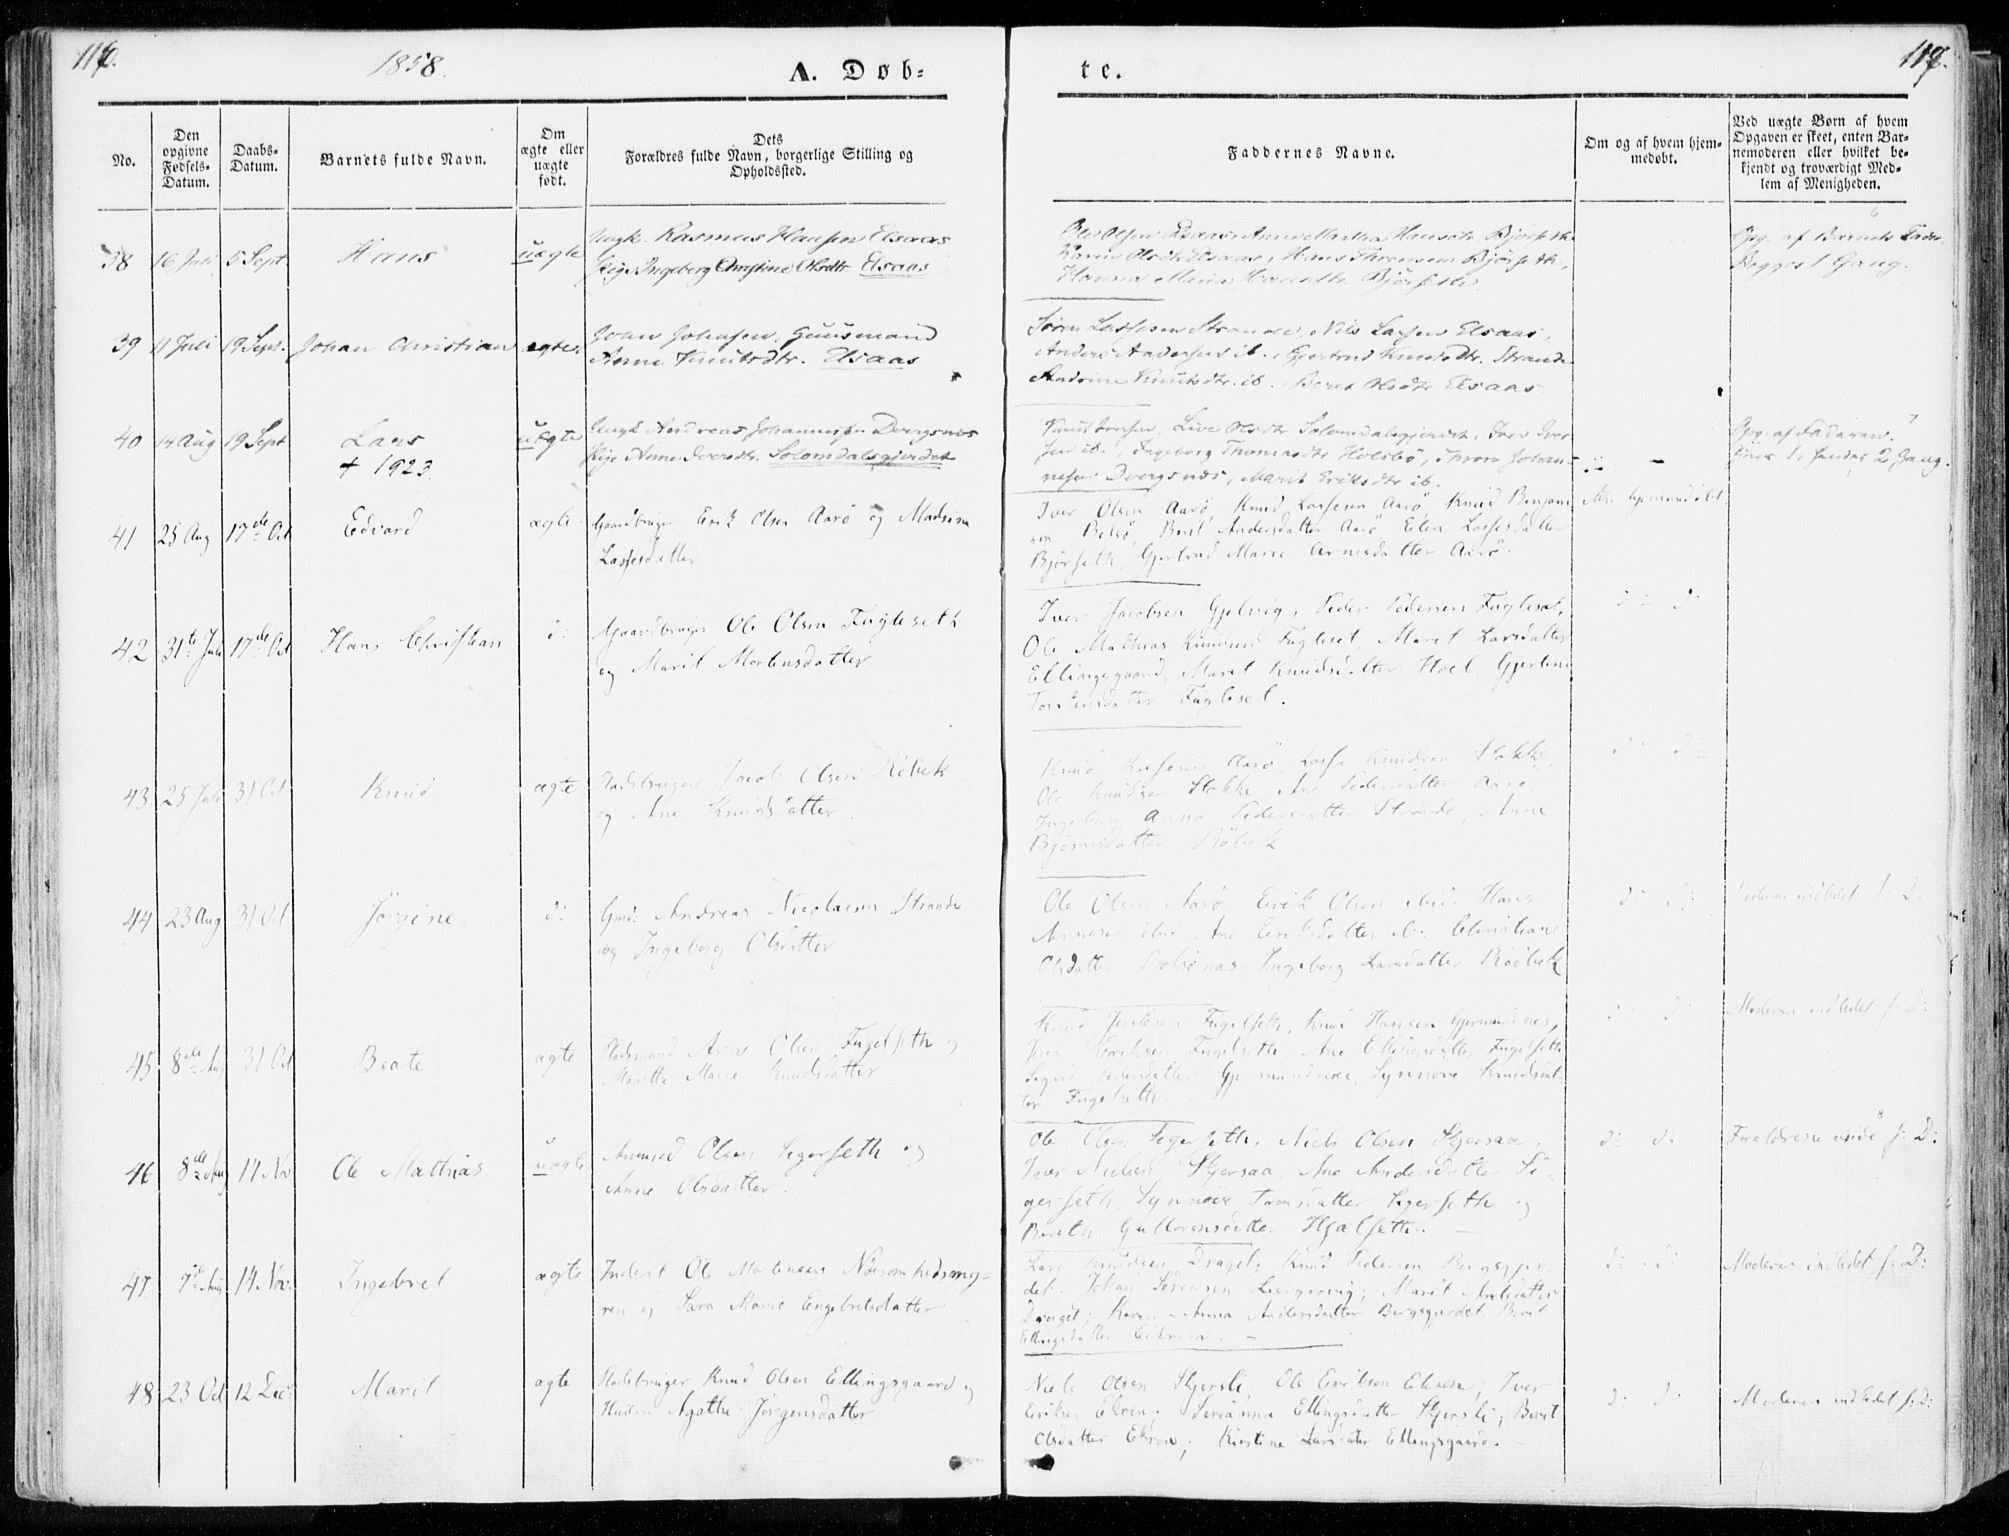 116.
1858.
A. Døb-
te.
117.
No.
Den opgivne Fødsels-Datum.
Daabs-Datum.
Barnets fulde Navn.
Om ægte eller uægte født.
Dets Forældres fulde Navn, borgerlige Stilling og Opholdssted.
Faddernes Navne.
Om og af hvem hjem-medøbt.
Ved uægte Børn af hvem Opgaven er skeet, enten Bar-nemoderen eller hvilket be-kjendt og troværdigt Med-lem af Menigheden.
38 16 Juli 5 Sept Hans uægte
Ungk. Rasmus Hansen Elsaas
Pige Ingeborg Christine Olsdtr Elsaas
Ole Olsen Elsaas, Anne Martha Hansdtr. Bjørseth
Karen Olsdtr Elsaas, Hans Thronsen Bjørseth,
Hanna Maria Hansdtr. Bjørseth
Opg. af Barnets Fader.
Begges 1 Gang.
39 11 Juli 19 Sept. Johan Christian ægte.
Johan Johnsen, Huusmand
Anne Knutsdtr. Elsaas
Søren Lassesen Strande, Nils Larsen Elsaas,
Anders Andersen ib., Gjertrud Knutsdtr. Strande
Andrine Knutsdtr. ib., Beret Olsdtr Elsaas
40 14 Aug 19 Sept Lars uægte
† 1923.
Ungk Andreas Johannesen Dvergsnes
Pige Anne Iversdtr. Solemdalsgjerdet
Knut Jonsen, Live Olsdtr Solemdalsgjerdet, Iver Iver-
sen ib., Ingeborg Thomasdtr Holsbø, Thron Johan-
nesen Dvergsnæs, Marit Eriksdtr ib.
Opg. af Faderen.
Hans 1, hendes 2 Gang.
41 25 Aug 17de Oct Edvard ægte
Gaardbruger Erik Olsen Aarø og Madsina
Lassesdatter
Iver Olsen Aarø, Knud Lassesen Aarø, Knud Benjami-
nsen Bolsø, Berit Andersdatter Aarø, Elen Lassesdatter
Bjørseth, Gjertrud Marie Arnesdatter Aarø.
Ikke hjemmedøbt
42 31te Juli 17de Oct Hans Christian d:
Gaardbruger Ole Olsen Fugleseth
og Marit Mortensdatter
Iver Jacobsen Gjelvig, Peder Pedersen Fugleset,
Ole Mathias Knudsen Fugleset, Marit Larsdatter
Ellingsgaard, Marit Knudsdatter Hoel, Gjertine
Torstensdatter Fugleset.
d: d:
43 25 Juli 31 Oct Knud ægte
Pladsbruger Jacob Olsen Røbek
og Ane Knudsdatter.
Knud Lassesen Aarø, Lasse Knudsen Stokke,
Ole Knudsen Stokke, Ane Pedersdatter Aarø,
Ingeborg Anna Pedersdatter Strande, Anne
Bjørnsdatter Røbek
d: d:
44 23 Aug 31 Oct Jørgine d:
Gmd: Andreas Nicolaisen Strande
og Ingeborg Olsdatter
Ole Olsen Aarø, Erik Olsen ibid: Hans
Arnesen ibid Ane Eriksdatter ib: Christiane
Olsdatter Bolsønæs, Ingeborg Larsdatter Røebek
d: d: Moderen indledet s: D:
45 8de Aug 31 Oct Beate ægte
Pladsmand Arne Olsen Fugelseth og
Marthe Marie Knudsdatter
Knud Jostesen Fugelseth, Knud Hansen Gjermundnes,
Jens Fugelseth Ane Ellingsdatter Fugelseth
Pedersdatter Gjermundnes, Synnøve Knudsdat-
ter Fugelseth.
d: Moderen indledet s: D:
46 8de Aug 14 Nov Ole Mathias uægte
Amund Olsen Segerseth og
Anne Olsdatter.
Ole Olsen Segerseth, Niels Olsen Skjersaa,
Iver Nielsen Skjersaa, Ane Andersdatter Se-
gerseth, Synnøve Tronsdatter Segerseth og
Bereth Guttormsdatter Hjælseth.
d: d: Forældrene unde s: D:
47 7de Aug 14 Nov: Ingebret ægte
Inderst Ole Mortensen Nøisomhedsmy-
ren og Sara Marie Engebretsdatter
Lars Knudsen Draget, Knud Pedersen Bergsgjer-
det. Johan Sørensen Leergrovig; Marit Andersdatter
Draget; Karen-Anna Andersdatter Bergsgjerdet Berit
Ellingsdatter Eikrem.
d: d: Moderen indledet s: D:
48 23 Oct 12 Dec: Marit ægte
Pladsbruger Knud Olsen Ellingsgaard og
Hustru Agathe Jørgensdatter
Niels Olsen Skjersli, Ole Eriksen Ekren, Iver
Eriksen Ekren; Serianna Ellingsdatter Skjersli; Berit
Olsdatter Ekren; Kirstine Larsdatter Ellingsgaard.
d: d: Moderen indledet s: D: